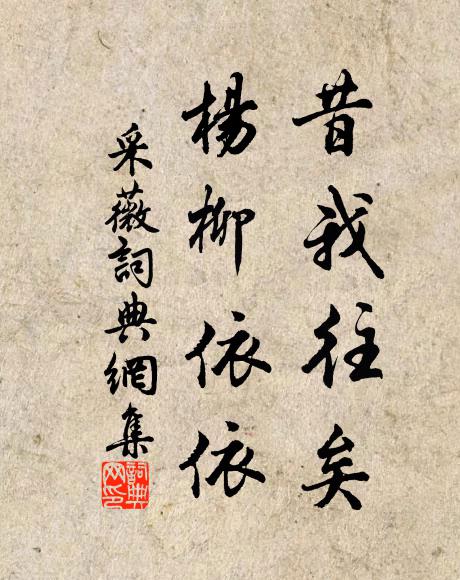 昔我往矣
楊柳依依
采薇詞典網集
詞典網印